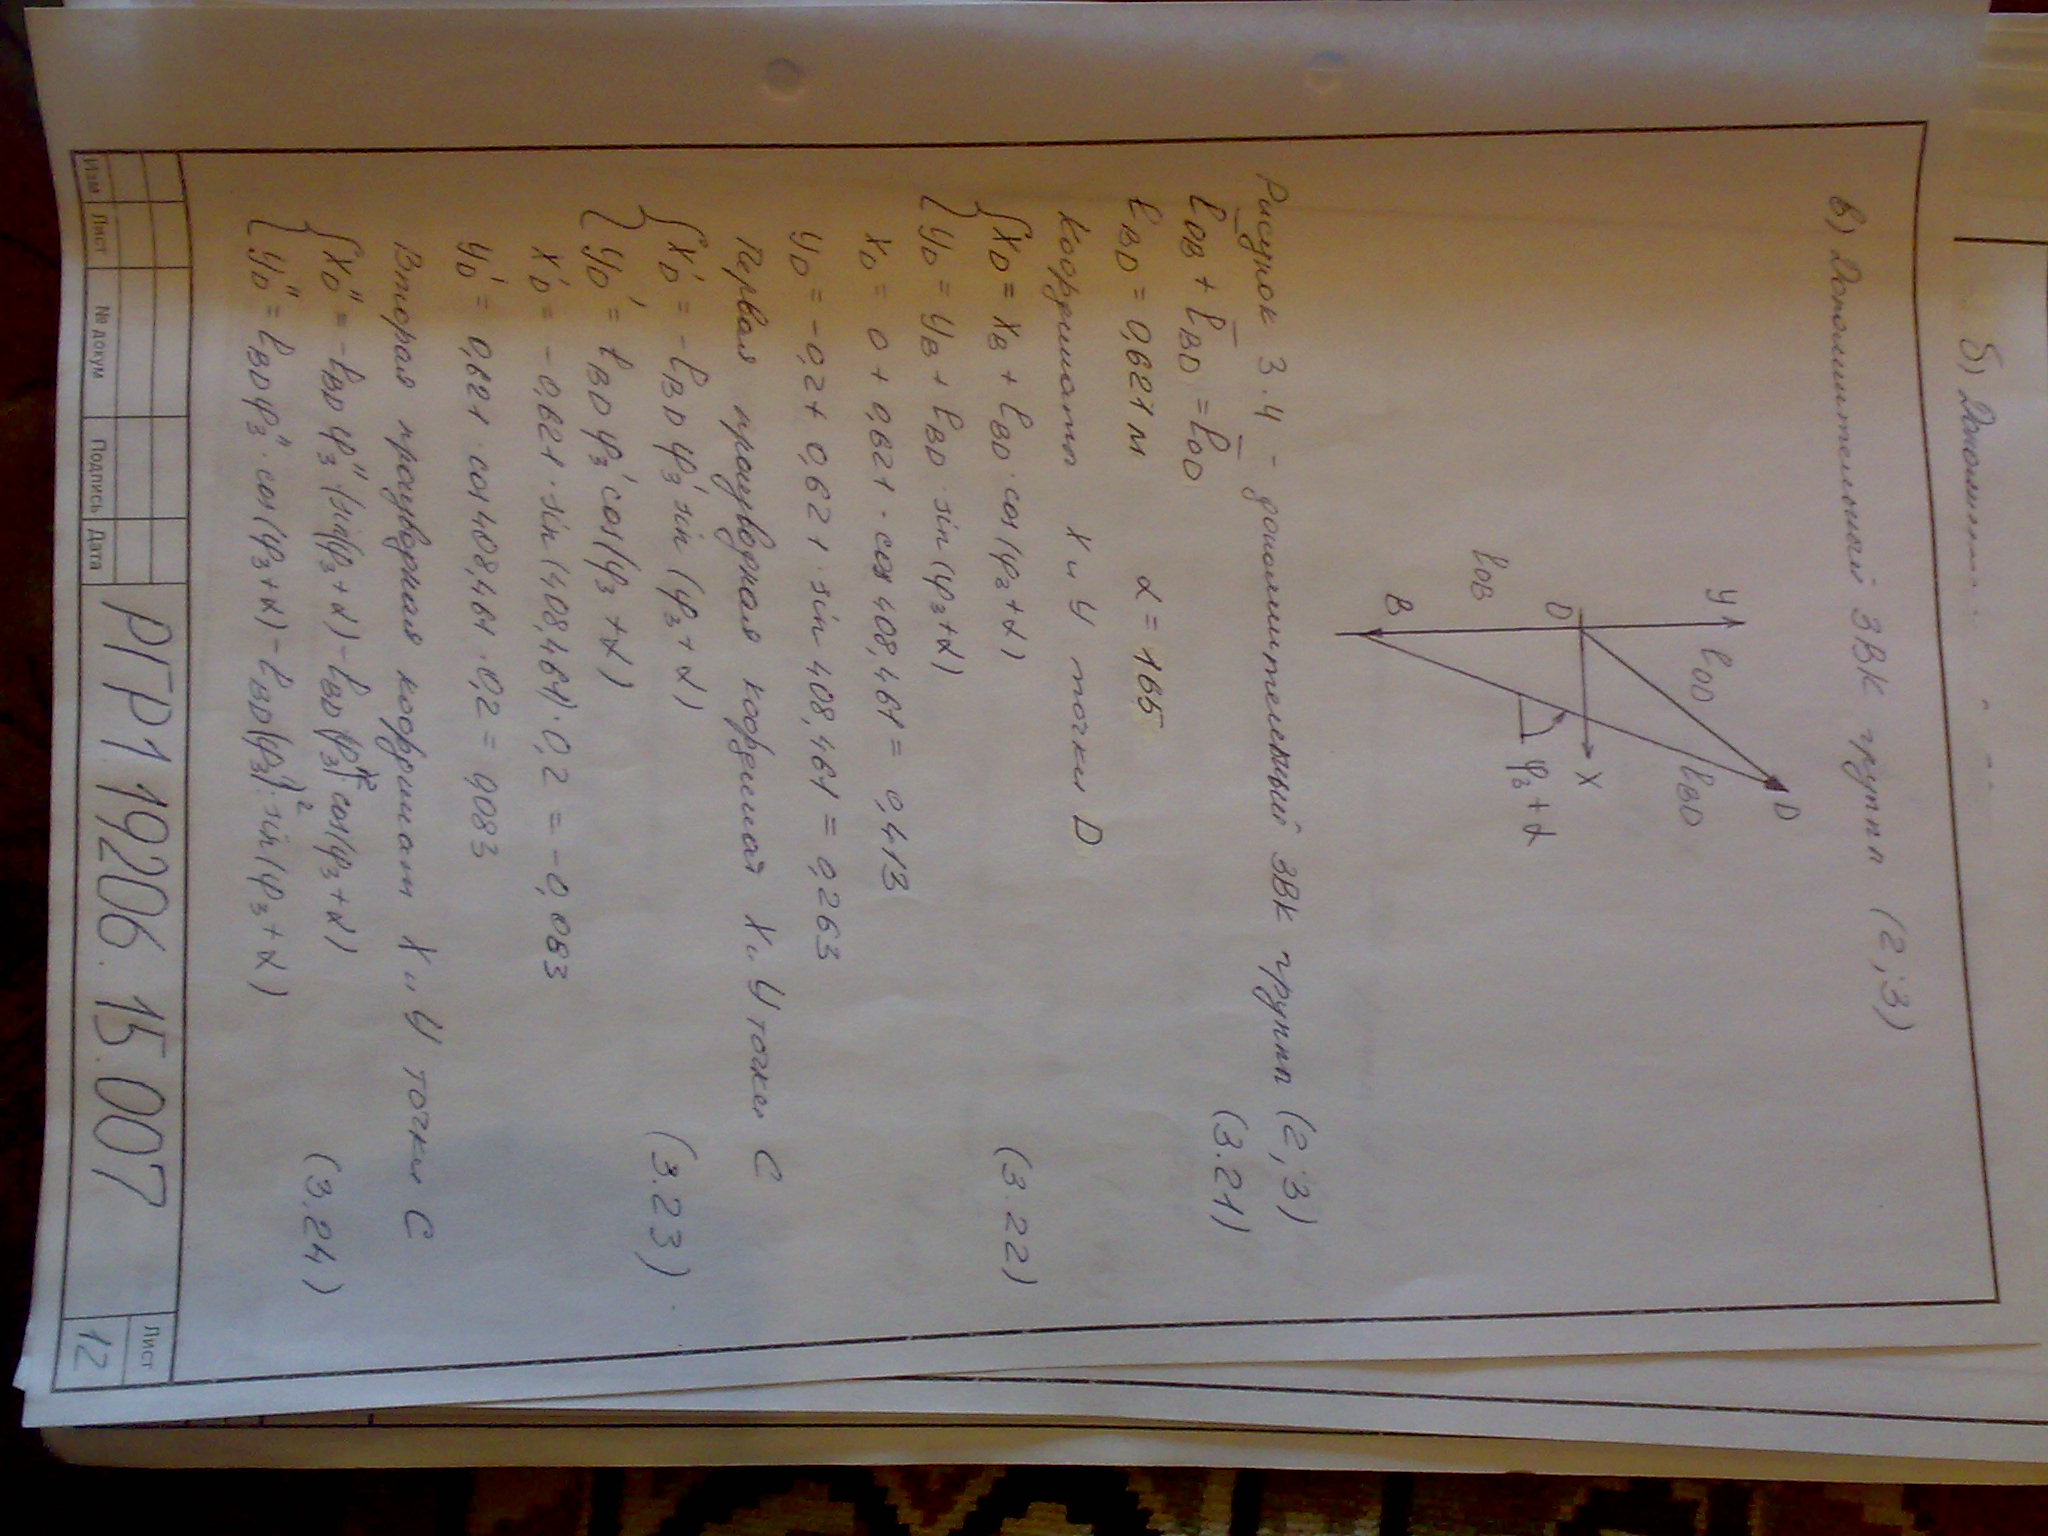 б)
в) Дополнительный ЗВК групп (2;3)
y
l̅OD
D
O
x
lBD
lOB
φ3 + α
B
Рисунок 3.4 – дополнительный ЗВК групп (2;3)
l̅OB + l̅BD = l̅OD (3.21)
lBD = 0,621 м α = 165
Координаты X и Y точки D
{ XD = XB + lBD · cos(φ3 + α)
{ YD = YB + lBD · sin(φ3 + α) (3.22)
XD = 0 + 0,621 · cos 408,461 = 0,413
YD = -0,2 + 0,621 · sin 408,461 = 0,263
Первая производная координат X и Y точки C
{ X'D = -lBD φ3' sin (φ3 + α)
{ YD' = lBD φ3' cos(φ3 + α) (3.23)
X'D = -0,621 · sin (408,461) · 0,2 = -0,083
YD' = 0,621 · cos 408,461 · 0,2 = 0,083
Вторая производная координат X и Y точки C
{ XD'' = -lBD φ3'' (sin(φ3 + α) - lBD (φ3')² cos(φ3 + α)
{ YD'' = lBD φ3'' · cos(φ3 + α) - lBD (φ3')² · sin(φ3 + α) (3.24)
Изм Лист № докум Подпись Дата
РГР1.19206.15.007
Лист
12